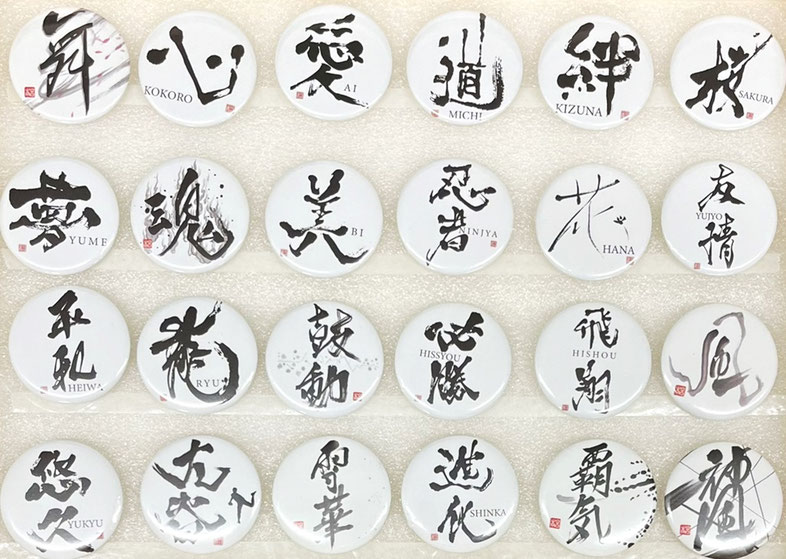 舞
心
KOKORO
愛
AI
道
MICHI
絆
KIZUNA
桜
SAKURA
夢
YUME
魂
美
BI
忍者
NINJYA
花
HANA
友情
YUJYO
平和
HEIWA
龍
RYU
鼓動
必勝
HISSYOU
飛翔
HISHOU
風
悠久
YUKYU
雪華
進化
SHINKA
覇気
神風